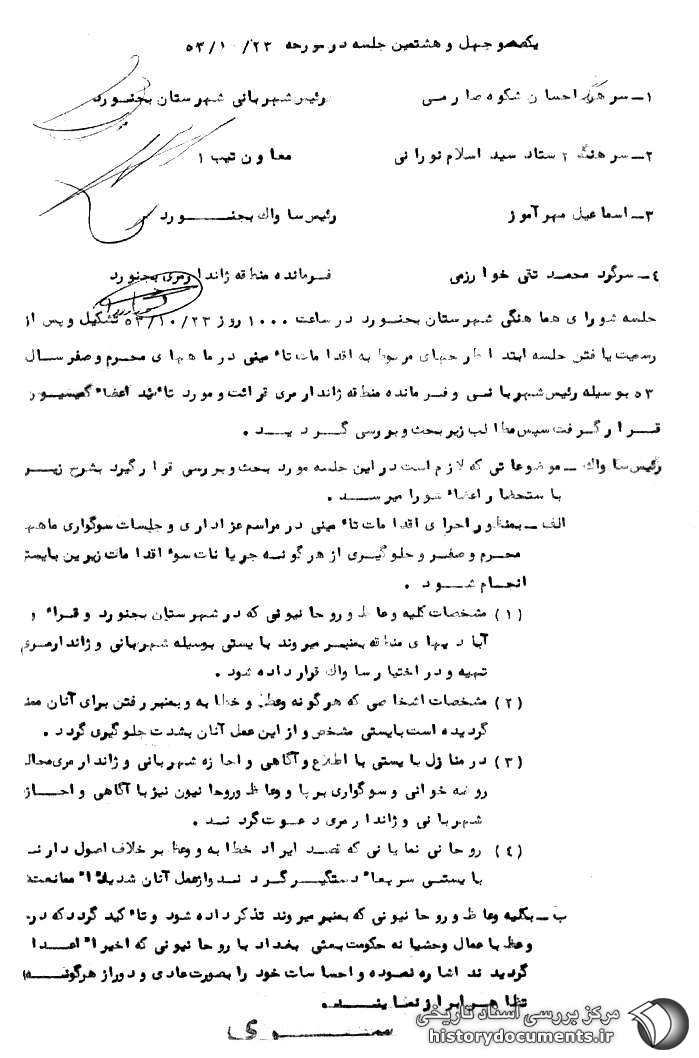 یکصدو چهل و هشتمین جلسه در مورحه ۵۳/۱۰/۲۳
۱ـ سرهنگ احسان شکوه صارمی رئیس شهربانی شهرستان بجنورد
۲ـ سرهنگ ۲ ستاد سید اسلام نورانی معاون تیپ ۱
۳ـ اسماعیل مهرآموز رئیس ساواک بجنورد
۴ـ سرگرد محمد تقی خوارزمی فرمانده منطقه ژاندارمری بجنورد
جلسه شورای هماهنگی شهرستان بجنورد در ساعت ۱۰۰۰ روز ۵۳/۱۰/۲۳ تشکیل و پس از
رسمیت یافتن جلسه ابتدا طرحهای مربوط به اقدامات تامینی در ماههای محرم و صفر سال
۵۳ بوسیله رئیس شهربانی و فرمانده منطقه ژاندارمری قرائت و مورد تائید اعضاء کمیسیون
قرار گرفت سپس مطالب زیر بحث و بررسی گردید .
رئیس ساواک ـ موضوعاتی که لازم است در این جلسه مورد بحث و بررسی قرار گیرد بشرح زیر
باستحضار اعضاء شورا میرسد .
الف ـ بمنظور اجرای اقدامات تامینی در مراسم عزاداری و جلسات سوگواری ماهه
محرم و صفر و جلوگیری از هرگونه جریانات سوء اقدامات زیرین بایستی
انجام شود .
(۱) مشخصات کلیه وعاظ و روحانیونی که در شهرستان بجنورد و قراء و
آبادیهای منطقه بمنبر میروند بایستی بوسیله شهربانی و ژاندارمری
تهیه و در اختیار ساواک قرار داده شود .
(۲) مشخصات اشخاصی که هرگونه وعظ و خطابه و بمنبر رفتن برای آنان
گردیده است بایستی مشخص و از این عمل آنان بشدت جلوگیری گردد .
(۳) در منازل بایستی با اطلاع و آگاهی و اجازه شهربانی و ژاندارمری مجالس
روضه خوانی و سوگواری برپا و وعاظ و روحانیون نیز با آگاهی و اجاز
شهربانی و ژاندارمری دعوت گردند .
(۴) روحانی نمایانی که قصد ایراد خطابه و وعظ بر خلاف اصول دارند
بایستی سریعاً دستگیر گردند و از عمل آنان شدیداً ممانعت
ب ـ بکلیه وعاظ و روحانیونی که بمنبر میروند تذکر داده شود و تاکید گردد که در
وعظ با عمال وحشیانه حکومت بعثی بغداد با روحانیونی که اخیراً اعدا
گردیدند اشاره نموده و احساسات خود را بصورت عادی و دور از هرگونه
تظاهر ابراز نمایند .
سری
مرکز بررسی اسناد تاریخی
historydocuments.ir